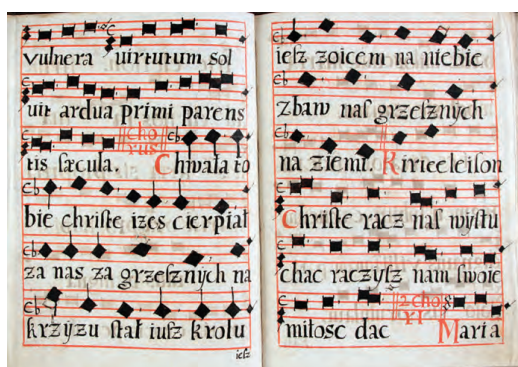 vulnera uirtutum sol
uit ardua primi parens
cho
rus
tis sæcula. Chwała to
bie chriſte izes cierpiał
za nas za grzeſznÿch na
krzÿzu ſtał iuſz krolu
ieſz
ieſz zoicem na niebie
zbaw naſ grzeſznÿch
na ziemi. Kirieeleiſon
Chriſte racz naſ wÿſtu
chac raczÿſz nam ſwoie
2 cho
ri
miłoſc dac Maria